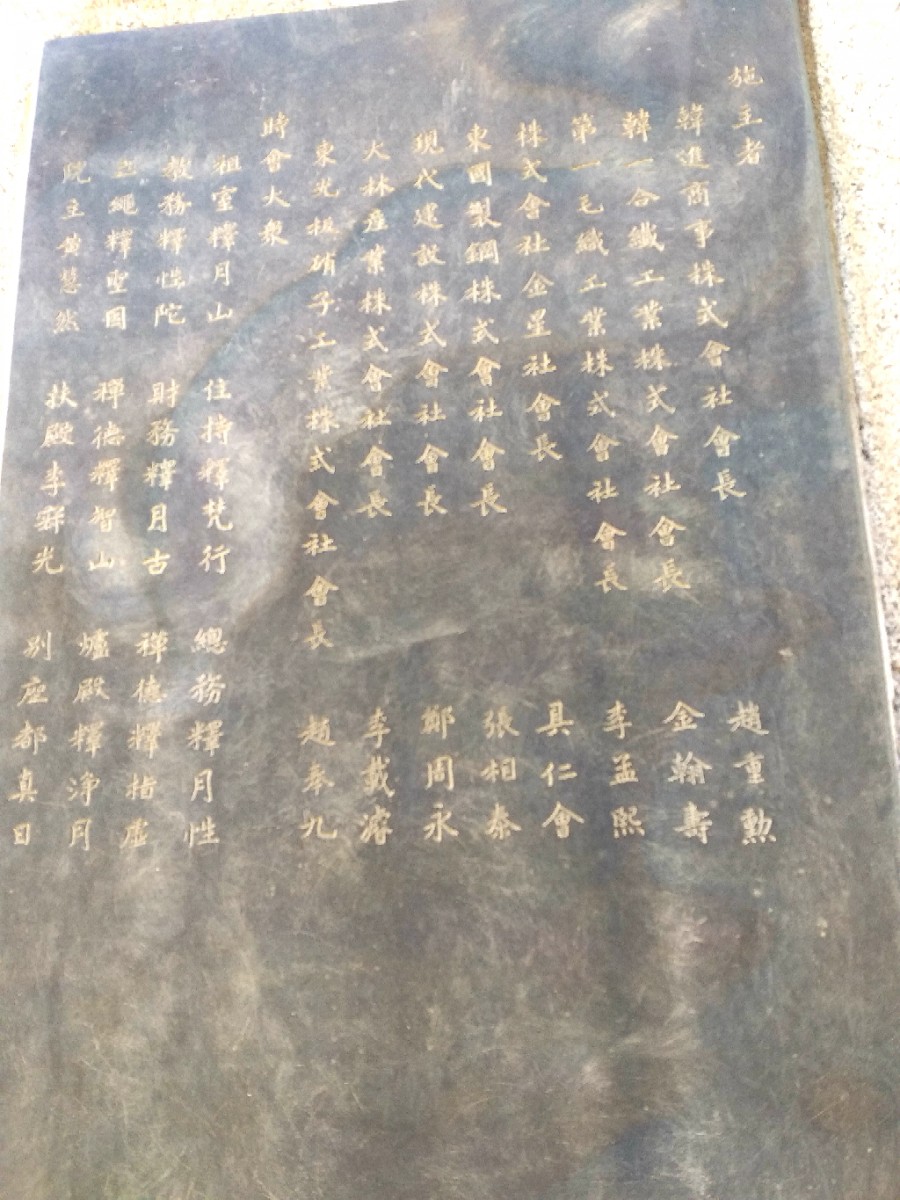 施主者
韓進商事株式會社會長 趙重勲
韓一合纖工業株式會社會長 金翰壽
第一毛織工業株式會社會長 李孟熙
株式會社金星社會長 具仁會
東國製鋼株式會社會長 張相泰
現代建設株式會社會長 鄭周永
大林産業株式會社會長 李載濬
東光板硝子工業株式會社會長 趙奉九
時會大衆
祖室釋月山 住持釋梵行 總務釋月性
敎務釋性陀 財務釋月古 禪德釋指虛
立繩釋聖圓 禪德釋智山 爐殿釋浄月
院主黄慧然 扶殿李 光 別座都真日